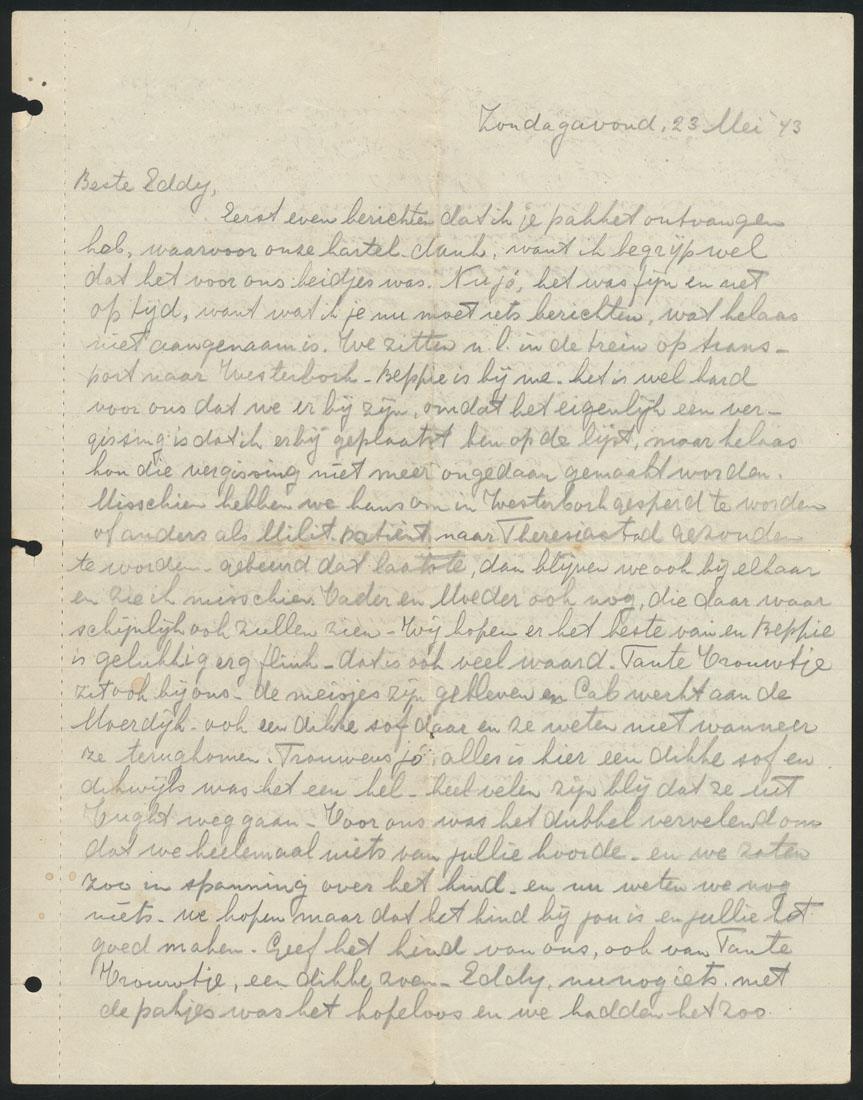 Zondagavond, 23 Mei '43
Beste Eddy,
Eerst even berichten dat ik je pakket ontvangen
heb, waarvoor onze hartel. dank, want ik begrijp wel
dat het voor ons beidjes was. Nu jó, het was fijn en net
op tijd, want wat ik je nu moet iets berichten, wat helaas
niet aangenaam is. We zitten n.l. in de trein op trans-
port naar Westerbork - Beppie is bij me - het is wel hard
voor ons dat we er bij zijn, omdat het eigenlijk een ver-
gissing is dat ik erbij geplaatst ben op de lijst, maar helaas
kon die vergissing niet meer ongedaan gemaakt worden.
Misschien hebben we kans om in Westerbork gesperd te worden
of anders als Milit. patient naar Theresiastad gezonden
te worden - gebeurd dat laatste, dan blijven we ook bij elkaar
en zie ik misschien Vader en Moeder ook nog, die daar waar
schijnlijk ook zullen zien - Wij hopen er het beste van en Beppie
is gelukkig erg flink - dat is ook veel waard. Tante Vrouwtje
zit ook bij ons - de meisjes zijn gebleven en Cab werkt aan de
Moerdijk - ook een dikke sof daar en ze weten niet wanneer
ze terugkomen. Trouwens jó, alles is hier een dikke sof en
dikwijls was het een hel - heel velen zijn blij dat ze uit
Vught weggaan - Voor ons was het dubbel vervelend om
dat we heelemaal niets van jullie hoorde - en we zaten
zoo in spanning over het kind - en nu weten we nog
niets - we hopen maar dat het kind bij jou is en jullie het
goed maken - Geef het kind van ons, ook van Tante
Vrouwtje, een dikke zoen - Eddy, nu nog iets met
de pakjes was het hopeloos en we hadden het zoo